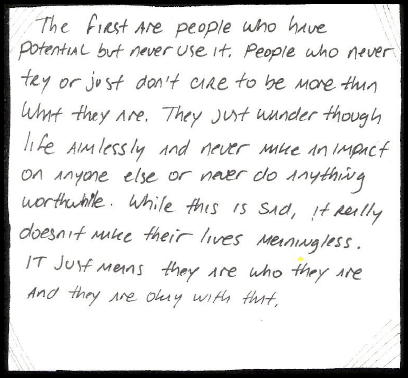 The first are people who have
potential but never use it. People who never
try or just don't care to be more than
what they are. They just wander though
life aimlessly and never make an impact
on anyone else or never do anything
worthwhile. While this is sad, it really
doesn't make their lives meaningless.
IT just means they are who they are
and they are okay with that.